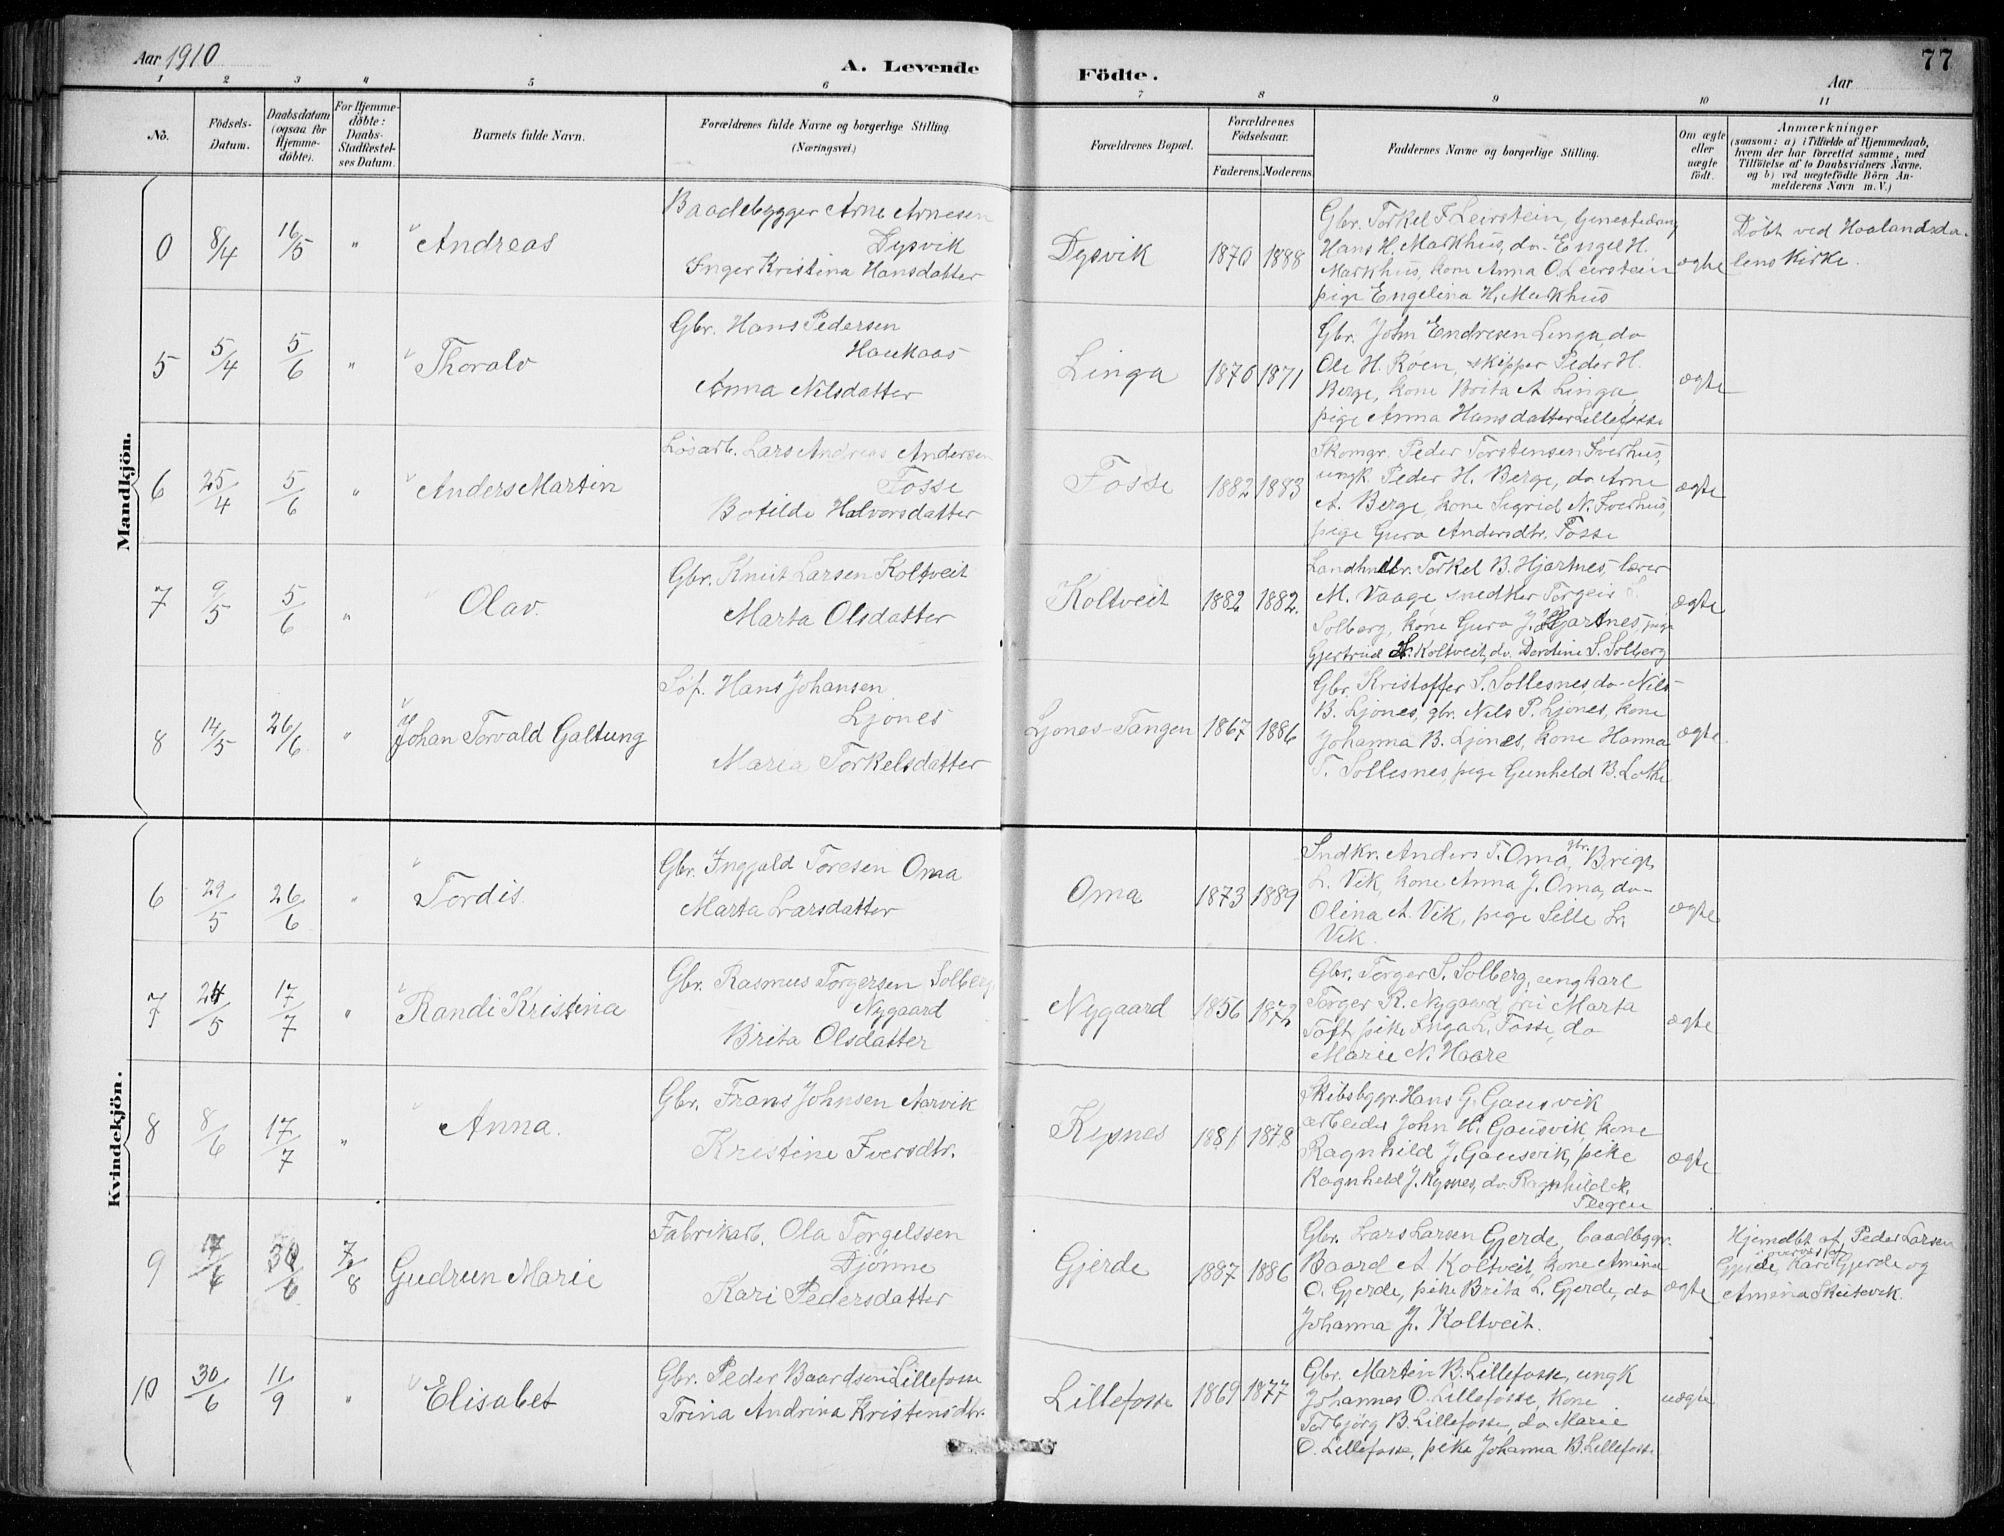 Aar 1910
A. Levende
Födte.
Aar
77
1 2 3 4 5 6 7 8 9 10 11
No.
Födsels-
Datum.
Daabsdatum
(ogsaa for
Hjemme-
döbte).
For Hjemme-
döbte:
Daabs-
Stadfæstel-
ses Datum.
Barnets fulde Navn.
Forældrenes fulde Navne og borgerlige Stilling.
(Næringsvei.)
Forældrenes Bopæl.
Forældrenes
Födselsaar.
Faderens. Moderens.
Faddernes Navne og borgerlige Stilling.
Om ægte
eller
uægte
födt.
Anmærkninger
(saasom: a) i Tilfælde af Hjemmedaab,
hvem der har forrettet samme, med
Tilföielse af to Daabsvidners Navne.
og b) ved uægtefödte Börn An-
melderens Navn m. V.)
Mandkjön.
0 8/4 16/5 " Andreas
Baadebygger Arne Arnesen
Dysvik
Inger Kristina Hansdatter
Dysvik 1870 1888
Gbr. Torkel F Leirstein,
Hans H. Markhus, do. Engel H.
Markhus, kone Anna O. Leirstein
pige Engelina H. Markhus
ægte
Döbt ved Haalandsda-
lens Kirke.
5 5/4 5/6 " Thoralv
Gbr. Hans Pedersen
Haukaas
Anna Nilsdatter
Linga 1870 1871
Gbr. John Endresen Linga, do
Ole H. Røen, skipper Peder H.
Berge, kone Brita A Linga,
pige Anna Hansdatter Lillefosse
ægte
6 25/4 5/6 " Anders Martin
Løsarb. Lars Andreas Andersen
Fosse
Botilde Halvorsdatter
Fosse 1882 1883
Skomgr. Peder Torstensen Iverhus,
ungk. Peder H. Berge, do Arne
A. Berge, kone Sigrid N. Iverhus,
pige Guro Andersdtr. Fosse
ægte
7 9/5 5/6 " Olav.
Gbr. Knut Larsen Koltveit
Marta Olsdatter
Koltveit 1882 1882.
Landhndlr. Torkel B. Hjartnes, lærer
M. Vaage snedker Torgeir S.
Solberg, kone Guro J. Hjartnes, pige
Gjertrud H. Koltveit, do. Dortine S. Solberg
ægte
8 14/5 26/6 " Johan Torvald Galtung
Søf. Hans Johansen
Ljones
Maria Torkelsdatter
Ljones-Tangen 1867 1886
Gbr. Kristoffer S. Sollesnes, do- Nils-
B. Ljones, gbr. Nils P. Ljones, kone
Johanna B. Ljones, kone Hanna
T. Sollesnes, pige Gunheld B. Lothe
ægte
Kvindekjön.
6 29/5 26/6 " Tordis.
Gbr. Ingjald Toresen Oma
Marta Larsdatter
Oma 1873 1889
Sndkr. Anders T. Oma, gbr. Brigt
L. Vik, kone Anna J. Oma, do-
Olina A. Vik, pige Sille L.
Vik.
ægte
7 24/5 17/7 " Randi Kristina
Gbr. Rasmus Torgersen Solberg
Nygaard
Brita Olsdatter
Nygaard 1856 1872
Gbr. Torger S. Solberg, ungkarl
Torger R. Nygaard, Marta
Toft pike Inga L. Fosse, do
Marie N. Haare
ægte
8 8/6 17/7 " Anna.
Gbr. Frans Johnsen Aarvik
Kristine Iversdtr.
Kysnes 1881 1878
Skibsbggr. Hans G. Gausvik
arbeider John H. Gausvik, kone
Ragnhild J. Gausvik, pike
Ragnheld J. Kysnes, do. Ragnhild K.
Teigen
ægte
9 17/6 30/6 7/8 Gudrun Marie
Fabrikarb. Ola Torgelssen
Djønne
Kari Pedersdatter
Gjerde 1887 1886
Gbr. Lars Larsen Gjerde, baadbggr.
Baard A. Koltveit, kone Amina
O. Gjerde, pike Brita L. Gjerde, do
Johanna J. Koltveit.
ægte
Hjemdbt af Peder Larsen
Gjerde, nærvær af Kari Gjerde og
Amina Skutevik.
10 30/6 11/9 " Elisabet
Gbr. Peder Baardsen Lillefosse
Trina Andrina Kristensdtr.
Lillefosse 1869 1877
Gbr. Martin B. Lillefosse, ungk
Johannes O. Lillefosse, kone
Torbjörg B. Lillefosse, do Marie
O. Lillefosse, pike Johanna B. Lillefosse
uægte